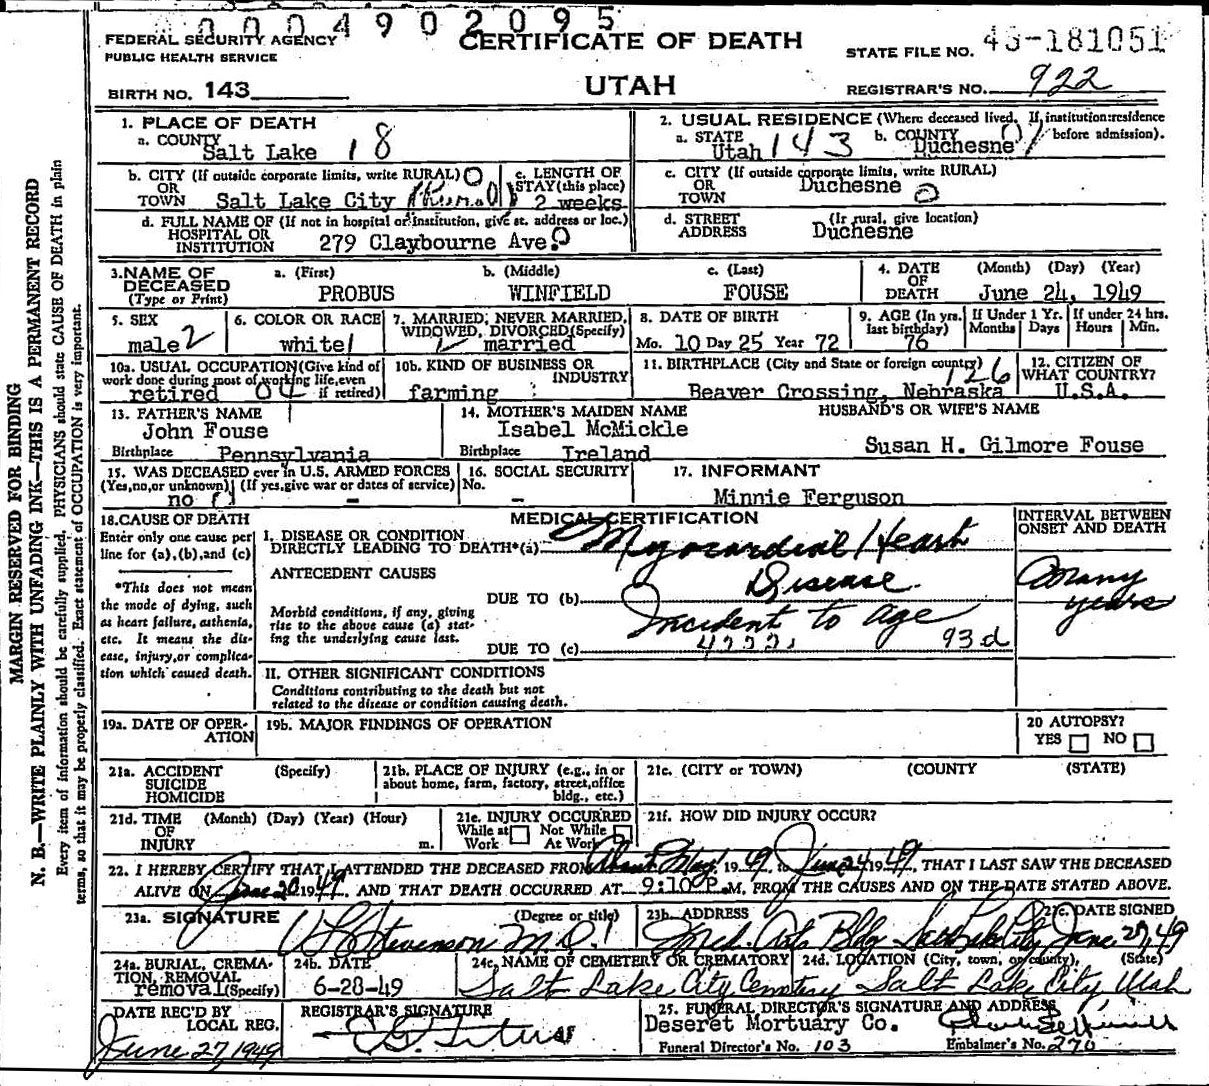 0004902095
FEDERAL SECURITY AGENCY
PUBLIC HEALTH SERVICE
CERTIFICATE OF DEATH
STATE FILE NO. 49-181051
BIRTH NO. 143
UTAH
REGISTRAR'S NO. 922
MARGIN RESERVED FOR BINDING
N. B.—WRITE PLAINLY WITH UNFADING INK—THIS IS A PERMANENT RECORD
Every item of information should be carefully supplied. PHYSICIANS should state CAUSE OF DEATH in plain
terms, so that it may be properly classified. Exact statement of OCCUPATION is very important.
1. PLACE OF DEATH
a. COUNTY
Salt Lake 18
2. USUAL RESIDENCE (Where deceased lived. If institution:residence
before admission).
a. STATE Utah 143 b. COUNTY Duchesne 07
b. CITY (If outside corporate limits, write RURAL) 0
OR
TOWN Salt Lake City (Rural)
c. LENGTH OF
STAY (this place)
2 weeks
c. CITY (If outside corporate limits, write RURAL)
OR
TOWN Duchesne 0
d. FULL NAME OF (If not in hospital or institution, give st. address or loc.)
HOSPITAL OR
INSTITUTION 279 Claybourne Ave. 0
d. STREET (If rural, give location)
ADDRESS Duchesne
3. NAME OF
DECEASED
(Type or Print)
a. (First)
PROBUS
b. (Middle)
WINFIELD
c. (Last)
FOUSE
4. DATE
OF
DEATH
(Month) (Day) (Year)
June 24, 1949
5. SEX
male 2
6. COLOR OR RACE
white 1
7. MARRIED, NEVER MARRIED,
WIDOWED, DIVORCED (Specify)
married
8. DATE OF BIRTH
Mo. 10 Day 25 Year 72
9. AGE (In yrs.
last birthday)
76
If Under 1 Yr.
Months Days
If under 24 hrs.
Hours Min.
10a. USUAL OCCUPATION (Give kind of
work done during most of working life, even
if retired)
retired 04
10b. KIND OF BUSINESS OR
INDUSTRY
farming
11. BIRTHPLACE (City and State or foreign country) 126
Beaver Crossing, Nebraska
12. CITIZEN OF
WHAT COUNTRY?
U.S.A.
13. FATHER'S NAME
John Fouse
Birthplace Pennsylvania
14. MOTHER'S MAIDEN NAME
Isabel McMickle
Birthplace Ireland
HUSBAND'S OR WIFE'S NAME
Susan H. Gilmore Fouse
15. WAS DECEASED ever in U.S. ARMED FORCES
(Yes, no, or unknown) (If yes, give war or dates of service)
no 0 -
16. SOCIAL SECURITY
No.
-
17. INFORMANT
Minnie Ferguson
18. CAUSE OF DEATH
Enter only one cause per
line for (a), (b), and (c)
*This does not mean
the mode of dying, such
as heart failure, asthenia,
etc. It means the dis-
ease, injury, or complica-
tion which caused death.
MEDICAL CERTIFICATION
I. DISEASE OR CONDITION
DIRECTLY LEADING TO DEATH*(a) Myocardial Heart
Disease
ANTECEDENT CAUSES
DUE TO (b) Incident to age
Morbid conditions, if any, giving
rise to the above cause (a) stat-
ing the underlying cause last.
DUE TO (c) 4222 93d
INTERVAL BETWEEN
ONSET AND DEATH
Many
years
II. OTHER SIGNIFICANT CONDITIONS
Conditions contributing to the death but not
related to the disease or condition causing death.
19a. DATE OF OPER-
ATION
19b. MAJOR FINDINGS OF OPERATION
20 AUTOPSY?
YES NO
21a. ACCIDENT (Specify)
SUICIDE
HOMICIDE
21b. PLACE OF INJURY (e.g., in or
about home, farm, factory, street, office
bldg., etc.)
21c. (CITY or TOWN) (COUNTY) (STATE)
21d. TIME (Month) (Day) (Year) (Hour)
OF
INJURY m.
21e. INJURY OCCURRED
While at Work Not While At Work
21f. HOW DID INJURY OCCUR?
22. I HEREBY CERTIFY THAT I ATTENDED THE DECEASED FROM About May, 1949 to June 24 1949, THAT I LAST SAW THE DECEASED
ALIVE ON June 20 1949, AND THAT DEATH OCCURRED AT 9:10 P. M, FROM THE CAUSES AND ON THE DATE STATED ABOVE.
23a. SIGNATURE (Degree or title)
Stevenson M.D.
23b. ADDRESS
Med. Arts Bldg Salt Lake City
23c. DATE SIGNED
June 27, 49
24a. BURIAL, CREMA-
TION, REMOVAL
(Specify)
removal
24b. DATE
6-28-49
24c. NAME OF CEMETERY OR CREMATORY
Salt Lake City Cemetery
24d. LOCATION (City, town, or county), (State)
Salt Lake City, Utah
DATE REC'D BY
LOCAL REG.
June 27, 1949
REGISTRAR'S SIGNATURE
25. FUNERAL DIRECTOR'S SIGNATURE AND ADDRESS
Deseret Mortuary Co.
Funeral Director's No. 103
Embalmer's No. 270